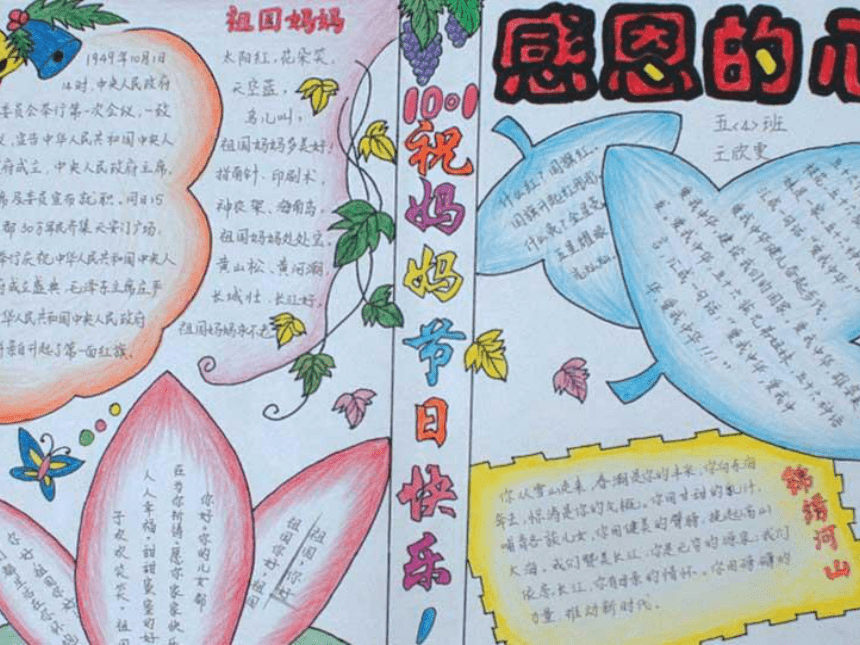 祖国妈妈
1949年10月1
14时，中央人民政府
委员会举行第一次会议，一致
议，宣告中华人民共和国中央人
府成立，中央人民政府主席，
席及委员宣布就职。同日15
都30万军民齐集天安门广场，
举行庆祝中华人民共和国中央人
府成立盛典，毛泽东主席庄严
华人民共和国中央人民政府
并亲自升起了第一面红旗。
太阳红，花朵笑，
天空蓝，
鸟儿叫，
祖国妈妈多美好！
指南针、印刷术，
神农架、海南岛，
祖国妈妈处处宝。
黄山松、黄河潮，
长城壮，长江好，
祖国妈妈永不老
1001
祝妈妈节日快乐！
感恩的心
五〈4〉班
王欣雯
什么红？国旗红。
国旗升起红彤彤。
什么亮？金星亮。
五星耀眼
亮灿灿。
爱我中华，建设我们的国家，
爱我中华健儿奋起步伐，
五十六族兄弟姐妹，
汇成一句话，爱我中华
“爱我中华！！！”
锦绣河山
你从雪山走来，春潮是你的丰采，你向东海
奔去，惊涛是你的气概。你用甘甜的乳汁，
哺育各族儿女，你用健美的臂膀，挽起高山
大海。我们赞美长江，你是无穷的源泉，我们
依恋长江，你有母亲的情怀。你用磅礴的
力量，推动新时代。
祖国，你好
祖国你好，祖国
你好。你的儿女都
在为你祈祷：愿你家家快乐
人人幸福，甜甜蜜蜜的好
子欢欢笑笑。祖国